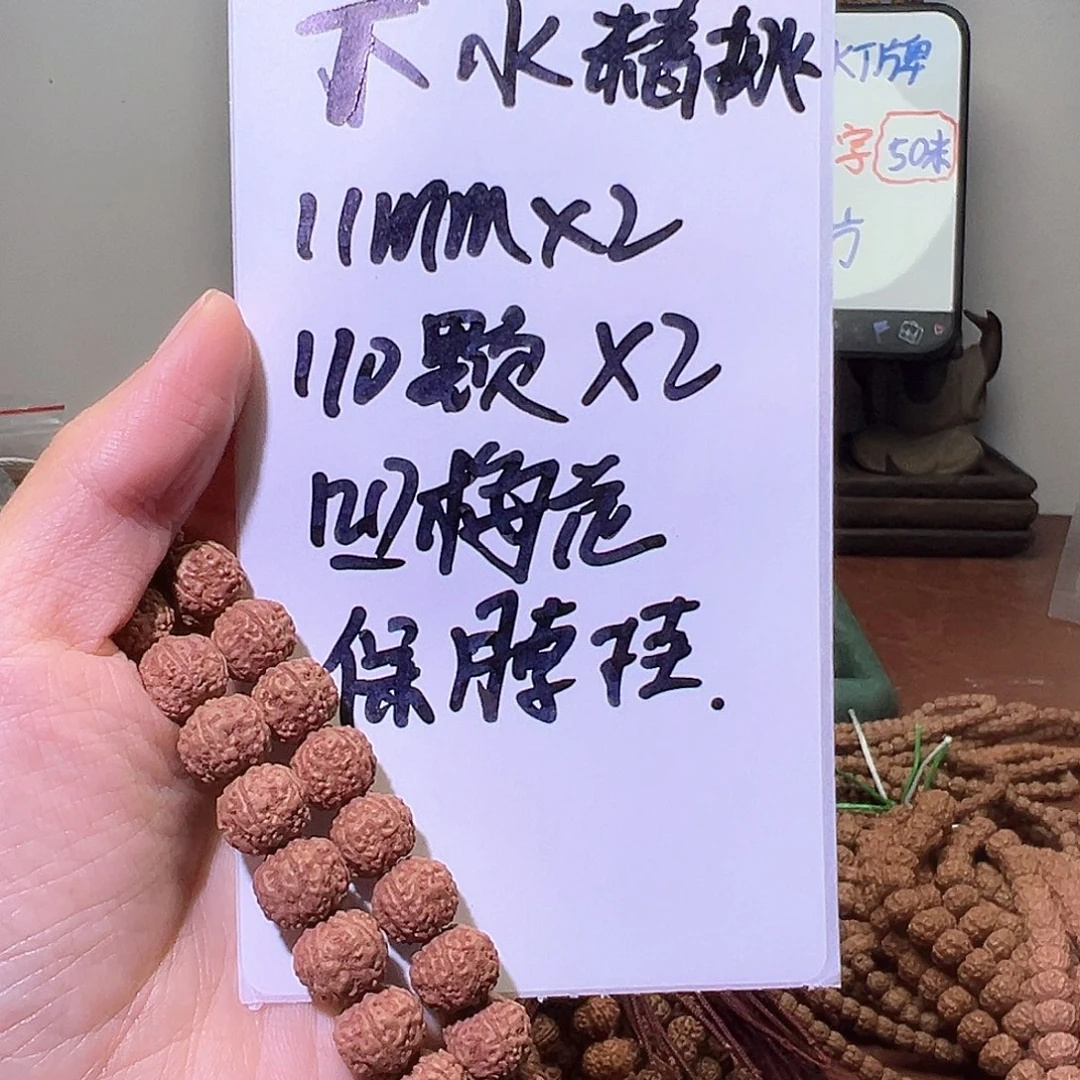 下水精挑
11mm×2
110颗×2
凹梅范
保脾珄.
KT牌
字 50米
方